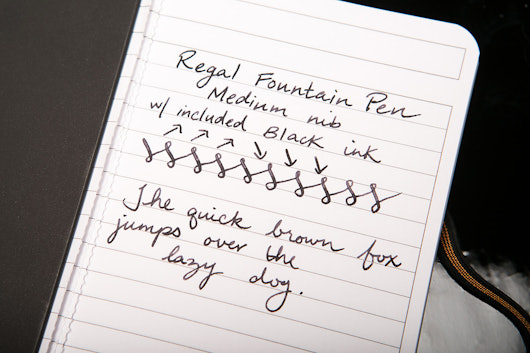 Regal Fountain Pen
Medium nib
w/ included Black ink
The quick brown fox
jumps over the
lazy dog.